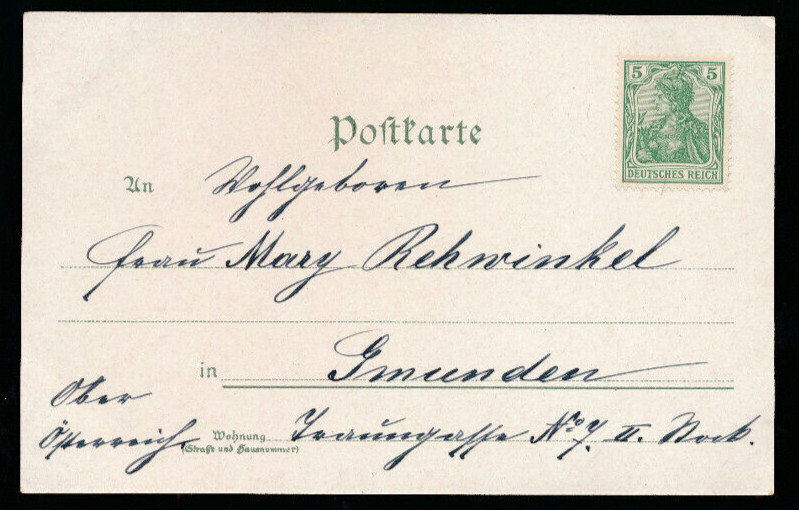 5 5
DEUTSCHES REICH
Postkarte
An Wohlgeboren
Frau Mary Rehwinkel
in Gmunden
Ober
Österreich. Wohnung Traungasse No 7. II. Stock.
(Straße und Hausnummer)